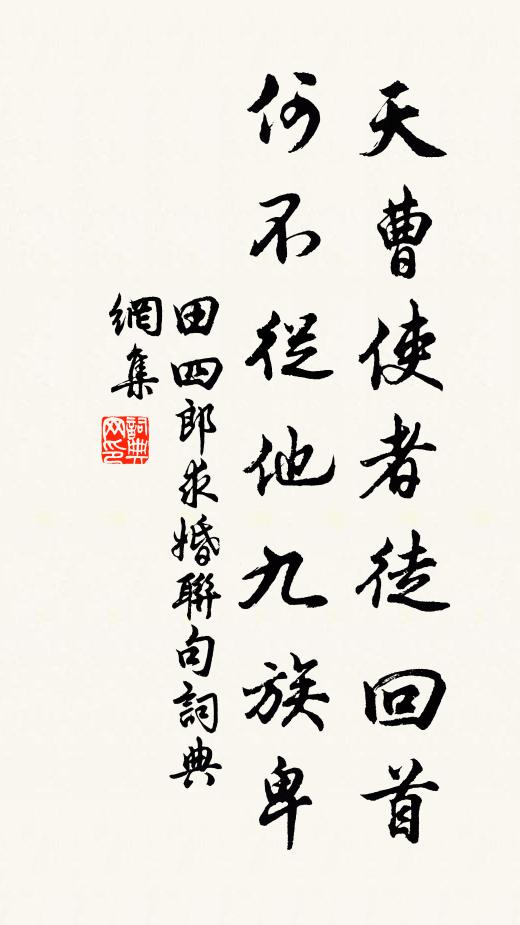 天曹使者徒回首
何不從他九族卑
田四郎求婚聯句詞典
網集
詞典
网印